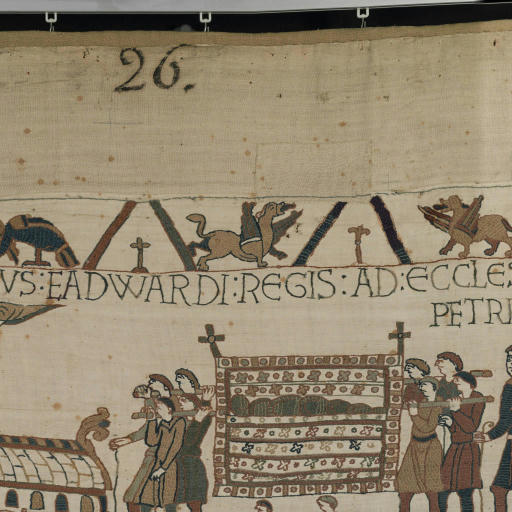 26.
VS:EADWARDI:REGIS:AD:ECCLES
PETRI